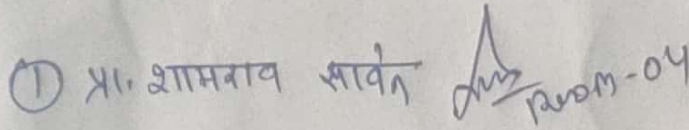 ① प्रा. शामराव सावंत Room-04